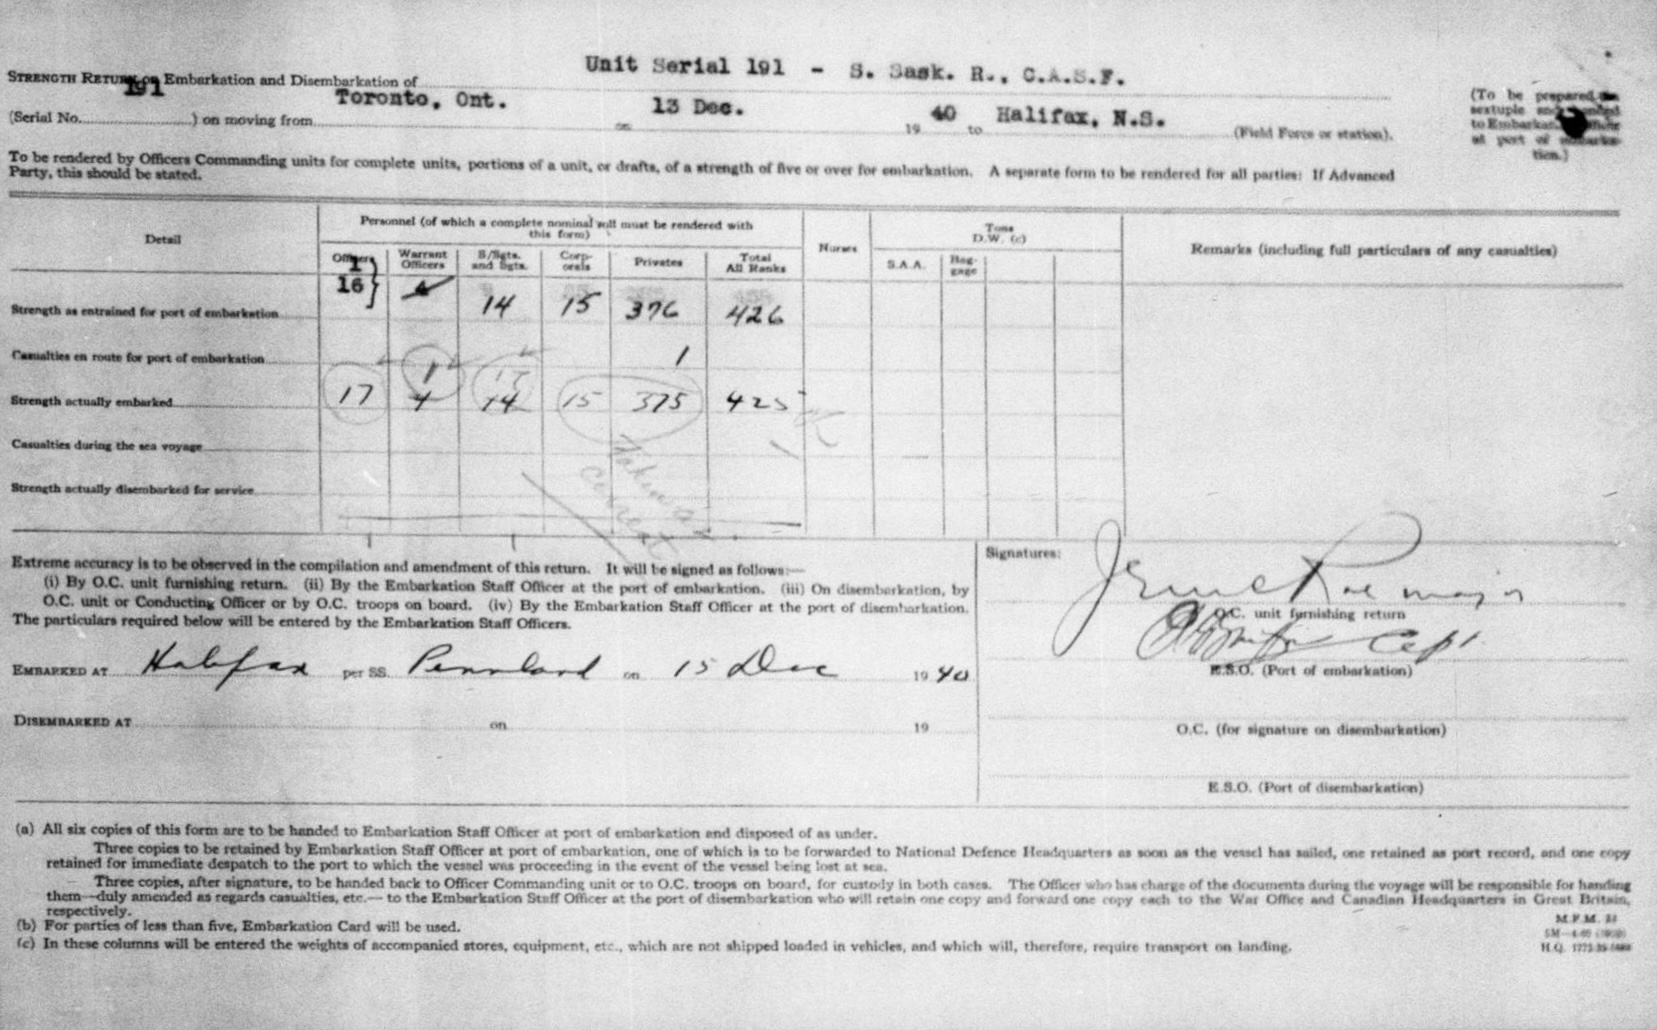 Unit Serial 191 - S. Sask. R., C.A.S.F.
STRENGTH RETURN on Embarkation and Disembarkation of
191
Toronto, Ont. 13 Dec. 40 Halifax, N.S.
(Serial No. ) on moving from on 19 to (Field Force or station).
(To be prepared in
sextuple and handed
to Embarkation Officer
at port of embarka-
tion.)
To be rendered by Officers Commanding units for complete units, portions of a unit, or drafts, of a strength of five or over for embarkation. A separate form to be rendered for all parties: If Advanced
Party, this should be stated.
Detail
Personnel (of which a complete nominal roll must be rendered with
this form)
Nurses
Tons
D.W. (c)
Remarks (including full particulars of any casualties)
Officers Warrant Officers S/Sgts. and Sgts. Corp-orals Privates Total All Ranks S.A.A. Bag-gage
1
16 4
Strength as entrained for port of embarkation 14 15 376 426
Casualties en route for port of embarkation 1
1 15
Strength actually embarked 17 4 14 15 375 425
Casualties during the sea voyage
Strength actually disembarked for service
Taken as
correct
Extreme accuracy is to be observed in the compilation and amendment of this return. It will be signed as follows:—
(i) By O.C. unit furnishing return. (ii) By the Embarkation Staff Officer at the port of embarkation. (iii) On disembarkation, by
O.C. unit or Conducting Officer or by O.C. troops on board. (iv) By the Embarkation Staff Officer at the port of disembarkation.
The particulars required below will be entered by the Embarkation Staff Officers.
EMBARKED AT Halifax per SS. Pennland on 15 Dec 1940
DISEMBARKED AT on 19
Signatures:
major
O.C. unit furnishing return
Capt.
E.S.O. (Port of embarkation)
O.C. (for signature on disembarkation)
E.S.O. (Port of disembarkation)
(a) All six copies of this form are to be handed to Embarkation Staff Officer at port of embarkation and disposed of as under.
Three copies to be retained by Embarkation Staff Officer at port of embarkation, one of which is to be forwarded to National Defence Headquarters as soon as the vessel has sailed, one retained as port record, and one copy
retained for immediate despatch to the port to which the vessel was proceeding in the event of the vessel being lost at sea.
Three copies, after signature, to be handed back to Officer Commanding unit or to O.C. troops on board, for custody in both cases. The Officer who has charge of the documents during the voyage will be responsible for handing
them—duly amended as regards casualties, etc.— to the Embarkation Staff Officer at the port of disembarkation who will retain one copy and forward one copy each to the War Office and Canadian Headquarters in Great Britain,
respectively.
(b) For parties of less than five, Embarkation Card will be used.
(c) In these columns will be entered the weights of accompanied stores, equipment, etc., which are not shipped loaded in vehicles, and which will, therefore, require transport on landing.
M.F.M.
5M
H.Q.